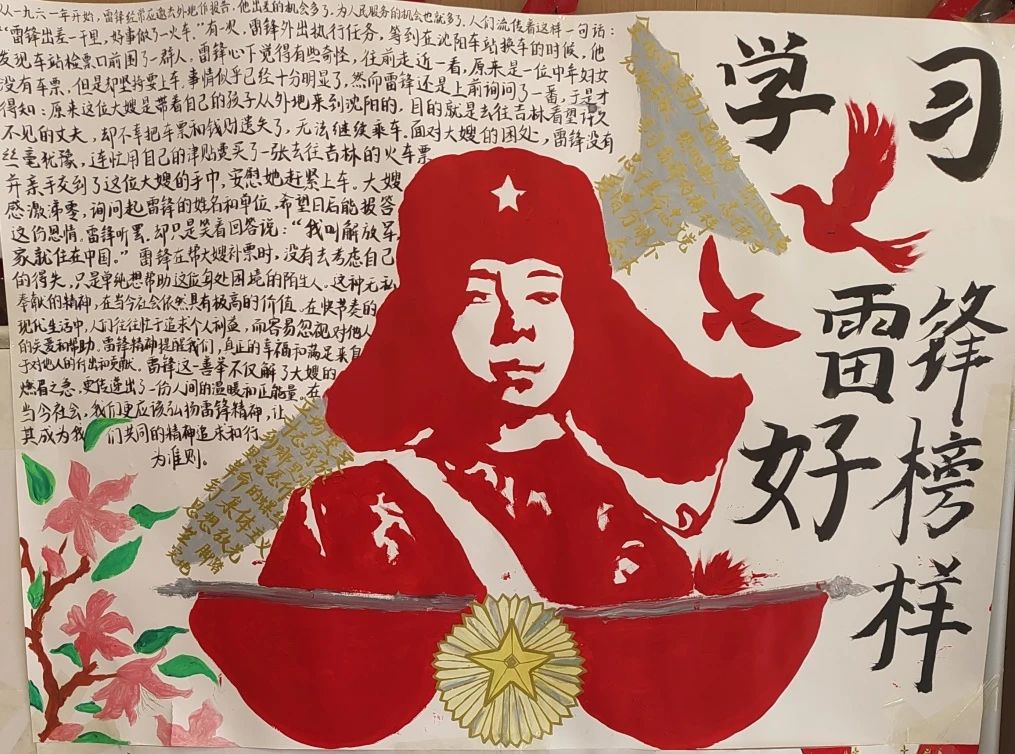 从一九六一年开始，雷锋经常应邀去外地作报告，他出差的机会多了，为人民服务的机会也就多了，人们流传着这样一句话：
“雷锋出差一千里，好事做了一火车。”有一次，雷锋外出执行任务，等到在沈阳车站换车的时候，他
发现车站检票口前围了一群人，雷锋心下觉得有些奇怪，往前走近一看，原来是一位中年妇女
没有车票，但是却坚持要上车，事情似乎已经十分明显了，然而雷锋还是上前询问了一番，于是才
得知：原来这位大嫂是带着自己的孩子从外地来到沈阳的，目的就是去往吉林看望许久
不见的丈夫，却不幸把车票和钱财遗失了，无法继续乘车，面对大嫂的困处，雷锋没有
丝毫犹豫，连忙用自己的津贴费买了一张去往吉林的火车票
并亲手交到了这位大嫂的手中，安慰她赶紧上车。大嫂
感激涕零，询问起雷锋的姓名和单位，希望日后能报答
这份恩情，雷锋听罢，却只是笑着回答说：“我叫解放军，
家就住在中国。”雷锋在帮大嫂补票时，没有去考虑自己
的得失，只是单纯想帮助这位身处困境的陌生人，这种无私
奉献的精神，在当今社会依然具有极高的价值。在快节奏的
现代生活中，人们往往忙于追求个人利益，而容易忽视对他人
的关爱和帮助，雷锋精神提醒我们，真正的幸福和满足来自
于对他人的付出和贡献，雷锋这一善举不仅解了大嫂的
燃眉之急，更传递出了一份人间的温暖和正能量。在
当今社会，我们更应该弘扬雷锋精神，让
其成为我们共同的精神追求和行
为准则。
学习
雷锋
好榜
样